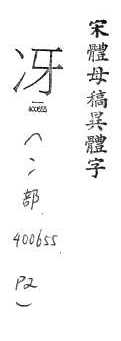 宋體母稿異體字
冴
400655
(冫部
400655
P2
)